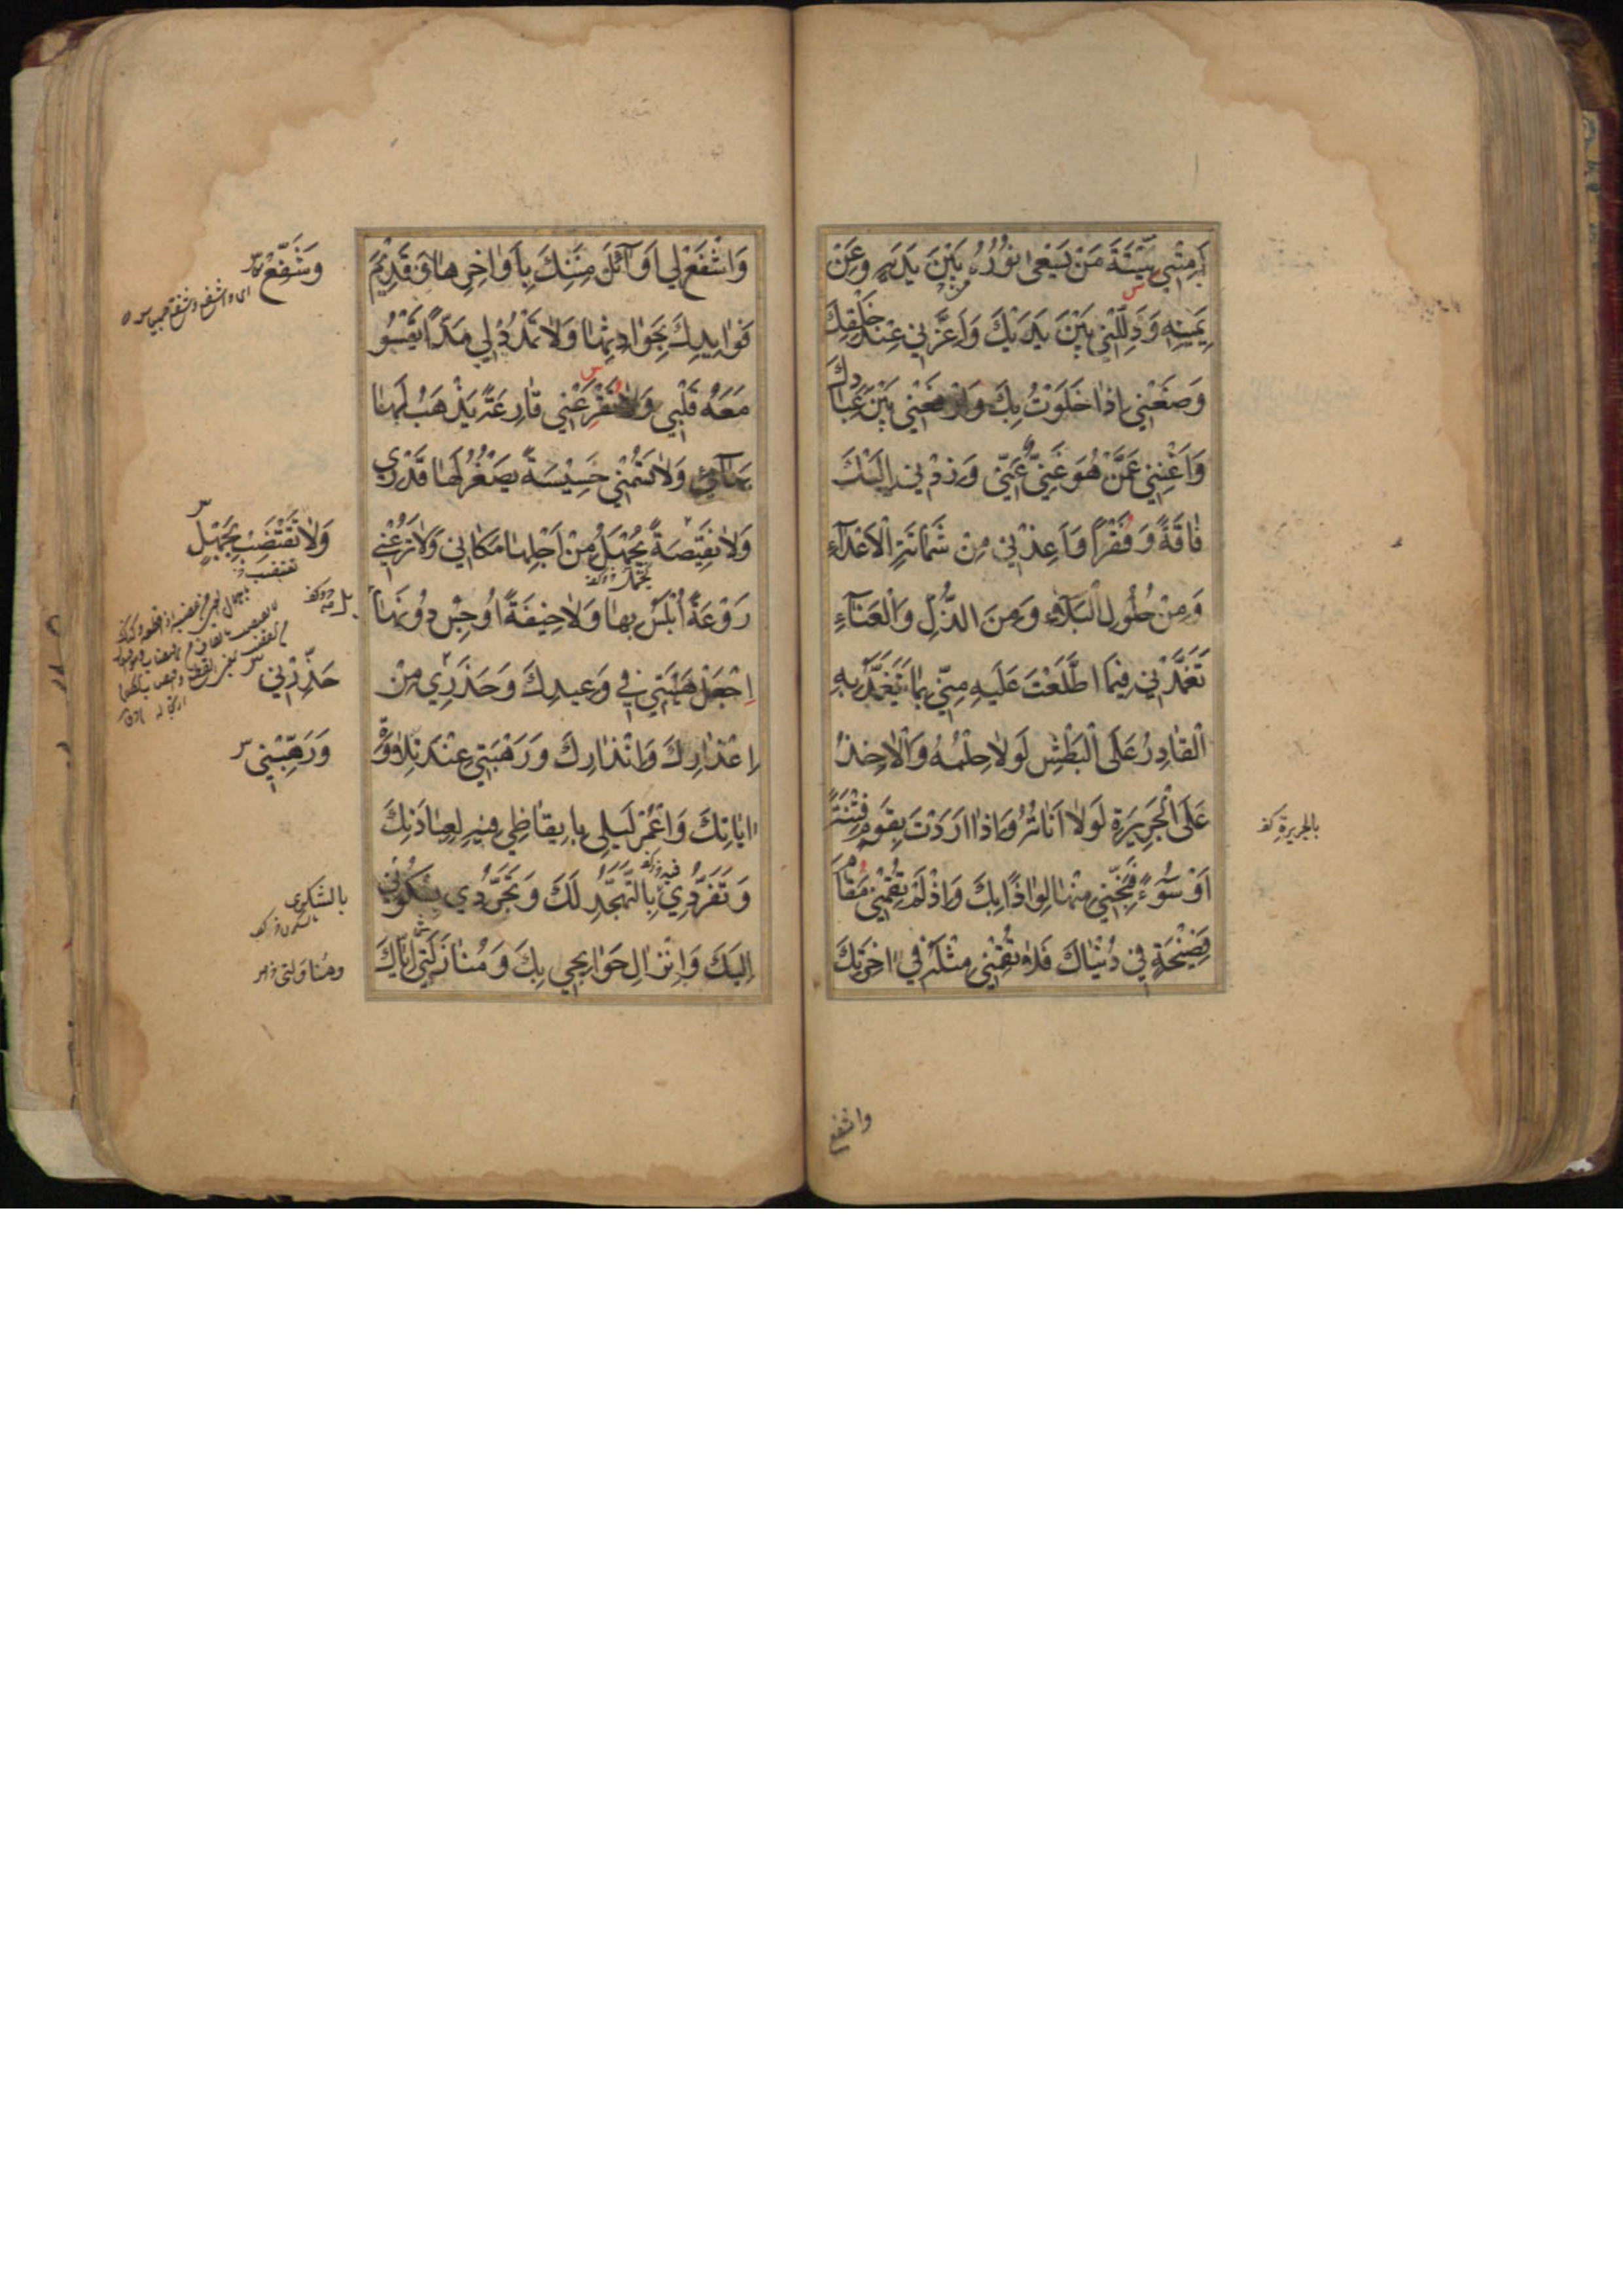 مِيتَةَ مَنْ يَسْعىٰ نُورُهُ بَيْنَ يَدَيْهِ وَعَنْ
يَمِينِهِ وَذَلِّلْنِي بَيْنَ يَدَيْكَ وَاَعِزَّنِي عِنْدَ خَلْقِكَ
وَضَعْنِي اِذٰا خَلَوْتُ بِكَ وَارْفَعْنِي بَيْنَ عِبٰادِكَ
وَاَغْنِنِي عَمَّنْ هُوَ غَنِيٌّ عَنِّي وَزِدْنِي اِلَيْكَ
فٰاقَةً وَفَقْرًا وَاَعِذْنِي مِنْ شَمٰاتَةِ الْاَعْدٰآءِ
وَمِنْ حُلُولِ الْبَلآءِ وَمِنَ الذُّلِّ وَالْعَنٰآءِ
تَغَمَّدْنِي فِيمَا اطَّلَعْتَ عَلَيْهِ مِنِّي بِمٰا يَتَغَمَّدُ بِهِ
الْقٰادِرُ عَلَى الْبَطْشِ لَوْلاٰ حِلْمُهُ وَالْاٰخِذُ
عَلَى الْجَرِيرَةِ لَوْلاٰ اَنٰاتُهُ وَاِذٰا اَرَدْتَ بِقَوْمٍ فِتْنَةً
اَوْ سُوٓءً فَنَجِّنِي مِنْهٰا لِوٰاذًا بِكَ وَاِذْ لَمْ تُقِمْنِي مَقٰامَ
فَضِيْحَةٍ فِي دُنْيٰاكَ فَلاٰ تُقِمْنِي مِثْلَهُ فِي اٰخِرَتِكَ
بالجريرة
واشفع
وَاشْفَعْ لِي اَوٰآئِلَ مِنَنِكَ بِاَوٰاخِرِهٰا وَقَدِيْمَ
فَوٰايِدِكَ بِحَوٰادِثِهٰا وَلاٰ تَمْدُدْ لِي مَدًّا يَقْسُو
مَعَهُ قَلْبِي وَلاٰ تَقْرَعْنِي قٰارِعَةً يَذْهَبُ لَهٰا
بَهٰآئِي وَلاٰ تَسُمْنِي خَسِيْسَةً يَصْغُرُ لَهٰا قَدْرِي
وَلاٰ نَقِيْصَةً يُجْهَلُ مِنْ اَجْلِهٰا مَكٰانِي وَلاٰ تَرُعْنِي
رَوْعَةً اُبْلِسُ بِهٰا وَلاٰ خِيْفَةً اُوجِسُ دُونَهٰا
اِجْعَلْ هَيْبَتِي فِي وَعِيدِكَ وَحَذَرِي مِنْ
اِعْذٰارِكَ وَاِنْذٰارِكَ وَرَهْبَتِي عِنْدَ تِلاٰوَةِ
اٰيٰاتِكَ وَاعْمُرْ لَيْلِي بِاِيقٰاظِي فِيهِ لِعِبٰادَتِكَ
وَتَفَرُّدِي بِالتَّهَجُّدِ لَكَ وَتَجَرُّدِي بِسُكُونِي
اِلَيْكَ وَاِنْزٰالِ حَوٰايِجِي بِكَ وَمُنٰازَلَتِي اِيّٰاكَ
وَشَفِّعْ
حَذِّرْنِي
وَرَهِّبْنِي
بالشكوى